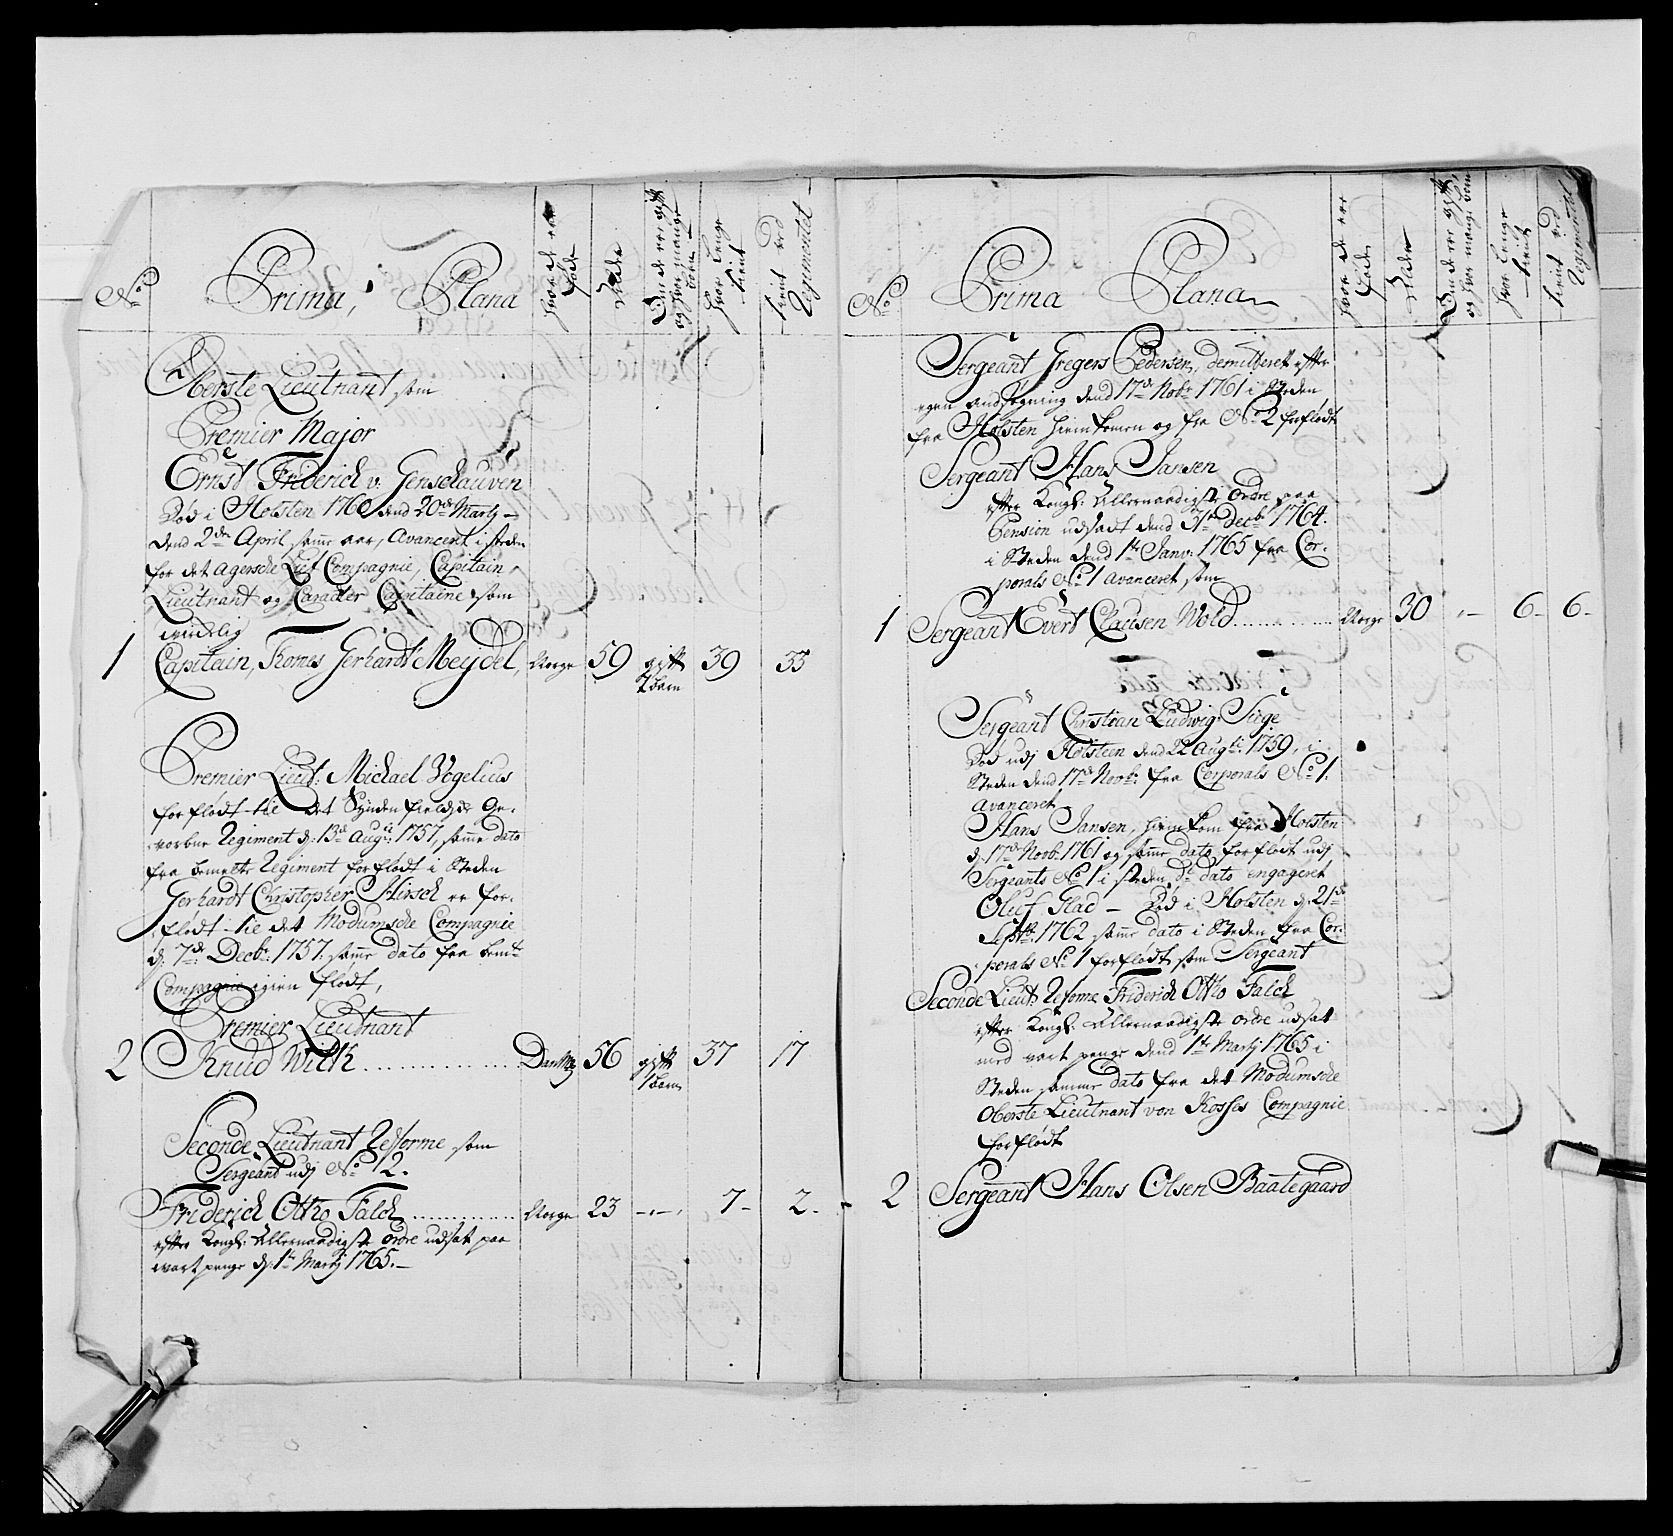 No
Prima, Plana
hvor de ere
fødte
Alder
Om de ere gift
og hvor mange
børn
hvor lenge
tient
tient ved
Regimentet
Oberste Lieutnant som
Premier Major
Ernst Friderich v: Genschauven
Død i Holsten 1760 dend 20de Marty –
dend 2den April samme aar, Avanceret i steden
for det agersche Lif Compagnie, Capitain
Lieutnant og Caracter Capitaine som
virkelig
1 Capitain, Thomes Gerhardt Meydel, Norge 59 gift 39 35
2 børn
Premier Lieut: Michael Vogelius
forflødt til det Synden fieldske Ge-
vorbne Regiment d: 13de Augti: 1757, samme dato
fra bemelte Regiment forflødt i Steden
Gerhardt Christopher Hirsch er for-
flødt til det Modumsche Compagnie
d: 7de Decbr: 1757. samme dato fra bemte
Compagnie igien flødt,
Premier Lieutnant
2 Knud Wilth Danmk 56 gift 37 17
1 barn
Seconde Lieutnant Reforme som
Sergeant udj No 2.
Friderich Otto Falch Norge 23 -.-. 7- 2.
efter Kongl: Allernaadigste ordre udsat paa
vart penge d: 1te Martj 1765. –
No
Prima Plana
hvor de ere
fødte
Alder
Om de ere gift,
og hvor mange børn
hvor lenge
tient
tient ved
Regimentet
Sergeant Gregers Pedersen, demitteret efter
egen andsøgning dend 17de Novbr 1761 i Steden,
fra Holsten hiemkomen og fra No 2 forflødt
Sergeant Hans Jansen
efter Kongl: Allernaadigste ordre paa
Pension udsadt dend 31te Decbr 1764.
i Steden dend 1te Janv: 1765 fra Cor-
porals No 1 avanceret, som
1 Sergeant Evert Clausen Wold Norge 30 -.- 6- 6-
Sergeant Christian Ludwig Siige
Død udj Holsteen dend 22 Augti: 1759, i
Steden dend 17de Novbr: fra Corporals No 1.
Avanceret
Hans Jansen, hiemkom fra Holsten
d: 17de Novb: 1761 og samme dato forflødt udj
Sergeants No 1 i steden, Dto dato engageret
Oluf Glad – Død i Holsten d: 21de
Septbr: 1762 samme dato i Steden fra Cor-
porals No 1 forflødt som Sergeant
Seconde Lieut: Reforme Friderich Otto Falch
efter Kongl: Allernaadigste ordre udsat
med vart penge dend 1te Martj 1765 i
Steden samme dato fra det Modumsche
Oberste Lieutnant von Kosses Compagnie
forflødt
2 Sergeant Hans Olsen Baategaard